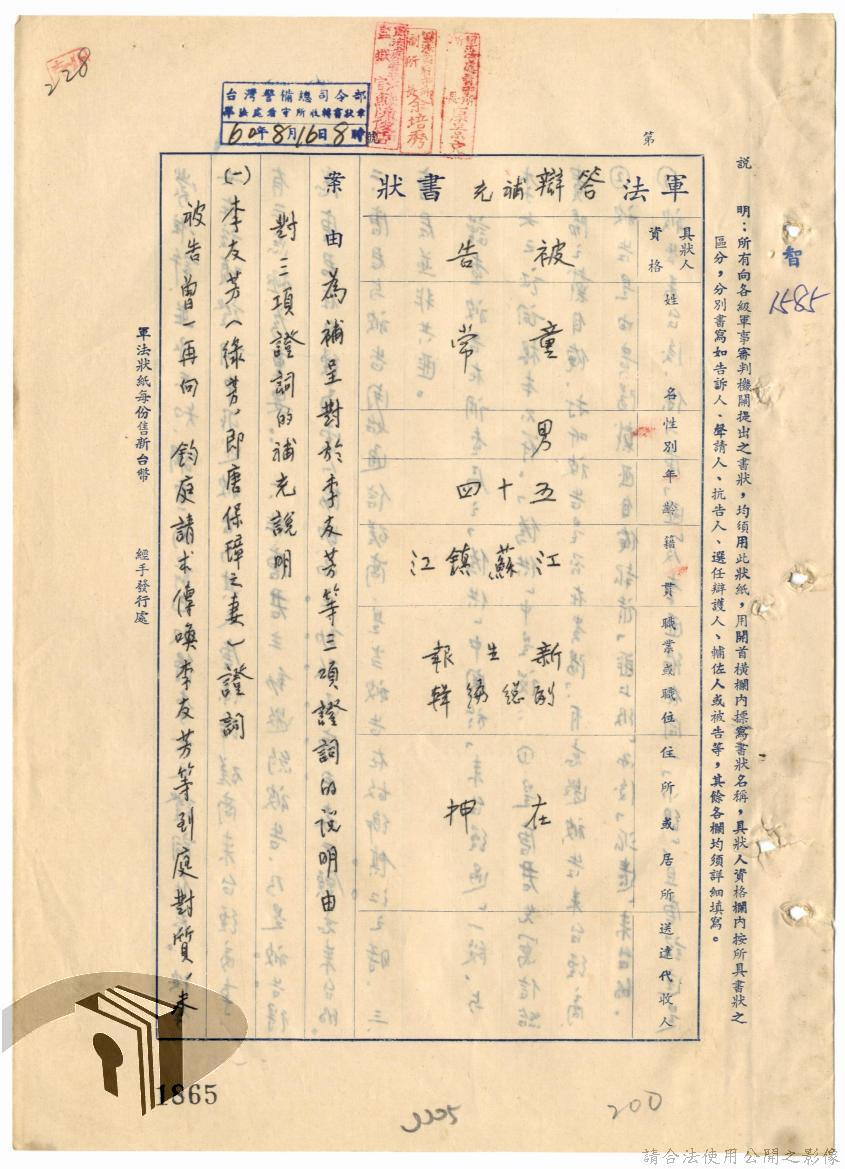 228
台灣警備總司令部
軍法處看守所收轉書狀章
60年8月16日8時
號
第
說明：所有向各級軍事審判機關提出之書狀，均須用此狀紙，用開首橫欄內標寫書狀名稱，具狀人資格欄內按所具書狀之
區分，分別書寫如告訴人、聲請人、抗告人、選任辯護人、輔佐人或被告等，其餘各欄均須詳細填寫。
智
1585
軍法答辯補充書狀
具狀人
資格
姓名
性別
年齡
籍貫
職業或職位
住所或居所
送達代收人
被告
童常
男
五十四
江蘇鎮江
新生報
副總編輯
在押
案由為補呈對於李友芳等三項證詞的說明由
對三項證詞的補充說明
(一)李友芳(綠芳，即唐保璋之妻)證詞
被告曾一再向 鈞庭請求傳喚李友芳等到庭對質，未
軍法狀紙每份售新台幣
經手發行處
1865
200
請合法使用公開之影像